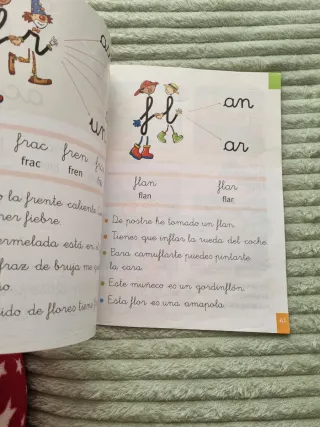 fr
frac fren
frac fren
la frente caliente
fiebre.
está en
de bruja
de flores
fl
an
ar
flan flar
flan
De postre he tomado un flan.
Tienes que inflar la rueda del coche.
Para camuflarte puedes pintarte
la cara.
Este muñeco es un gordinflón.
Esta flor es una amapola.